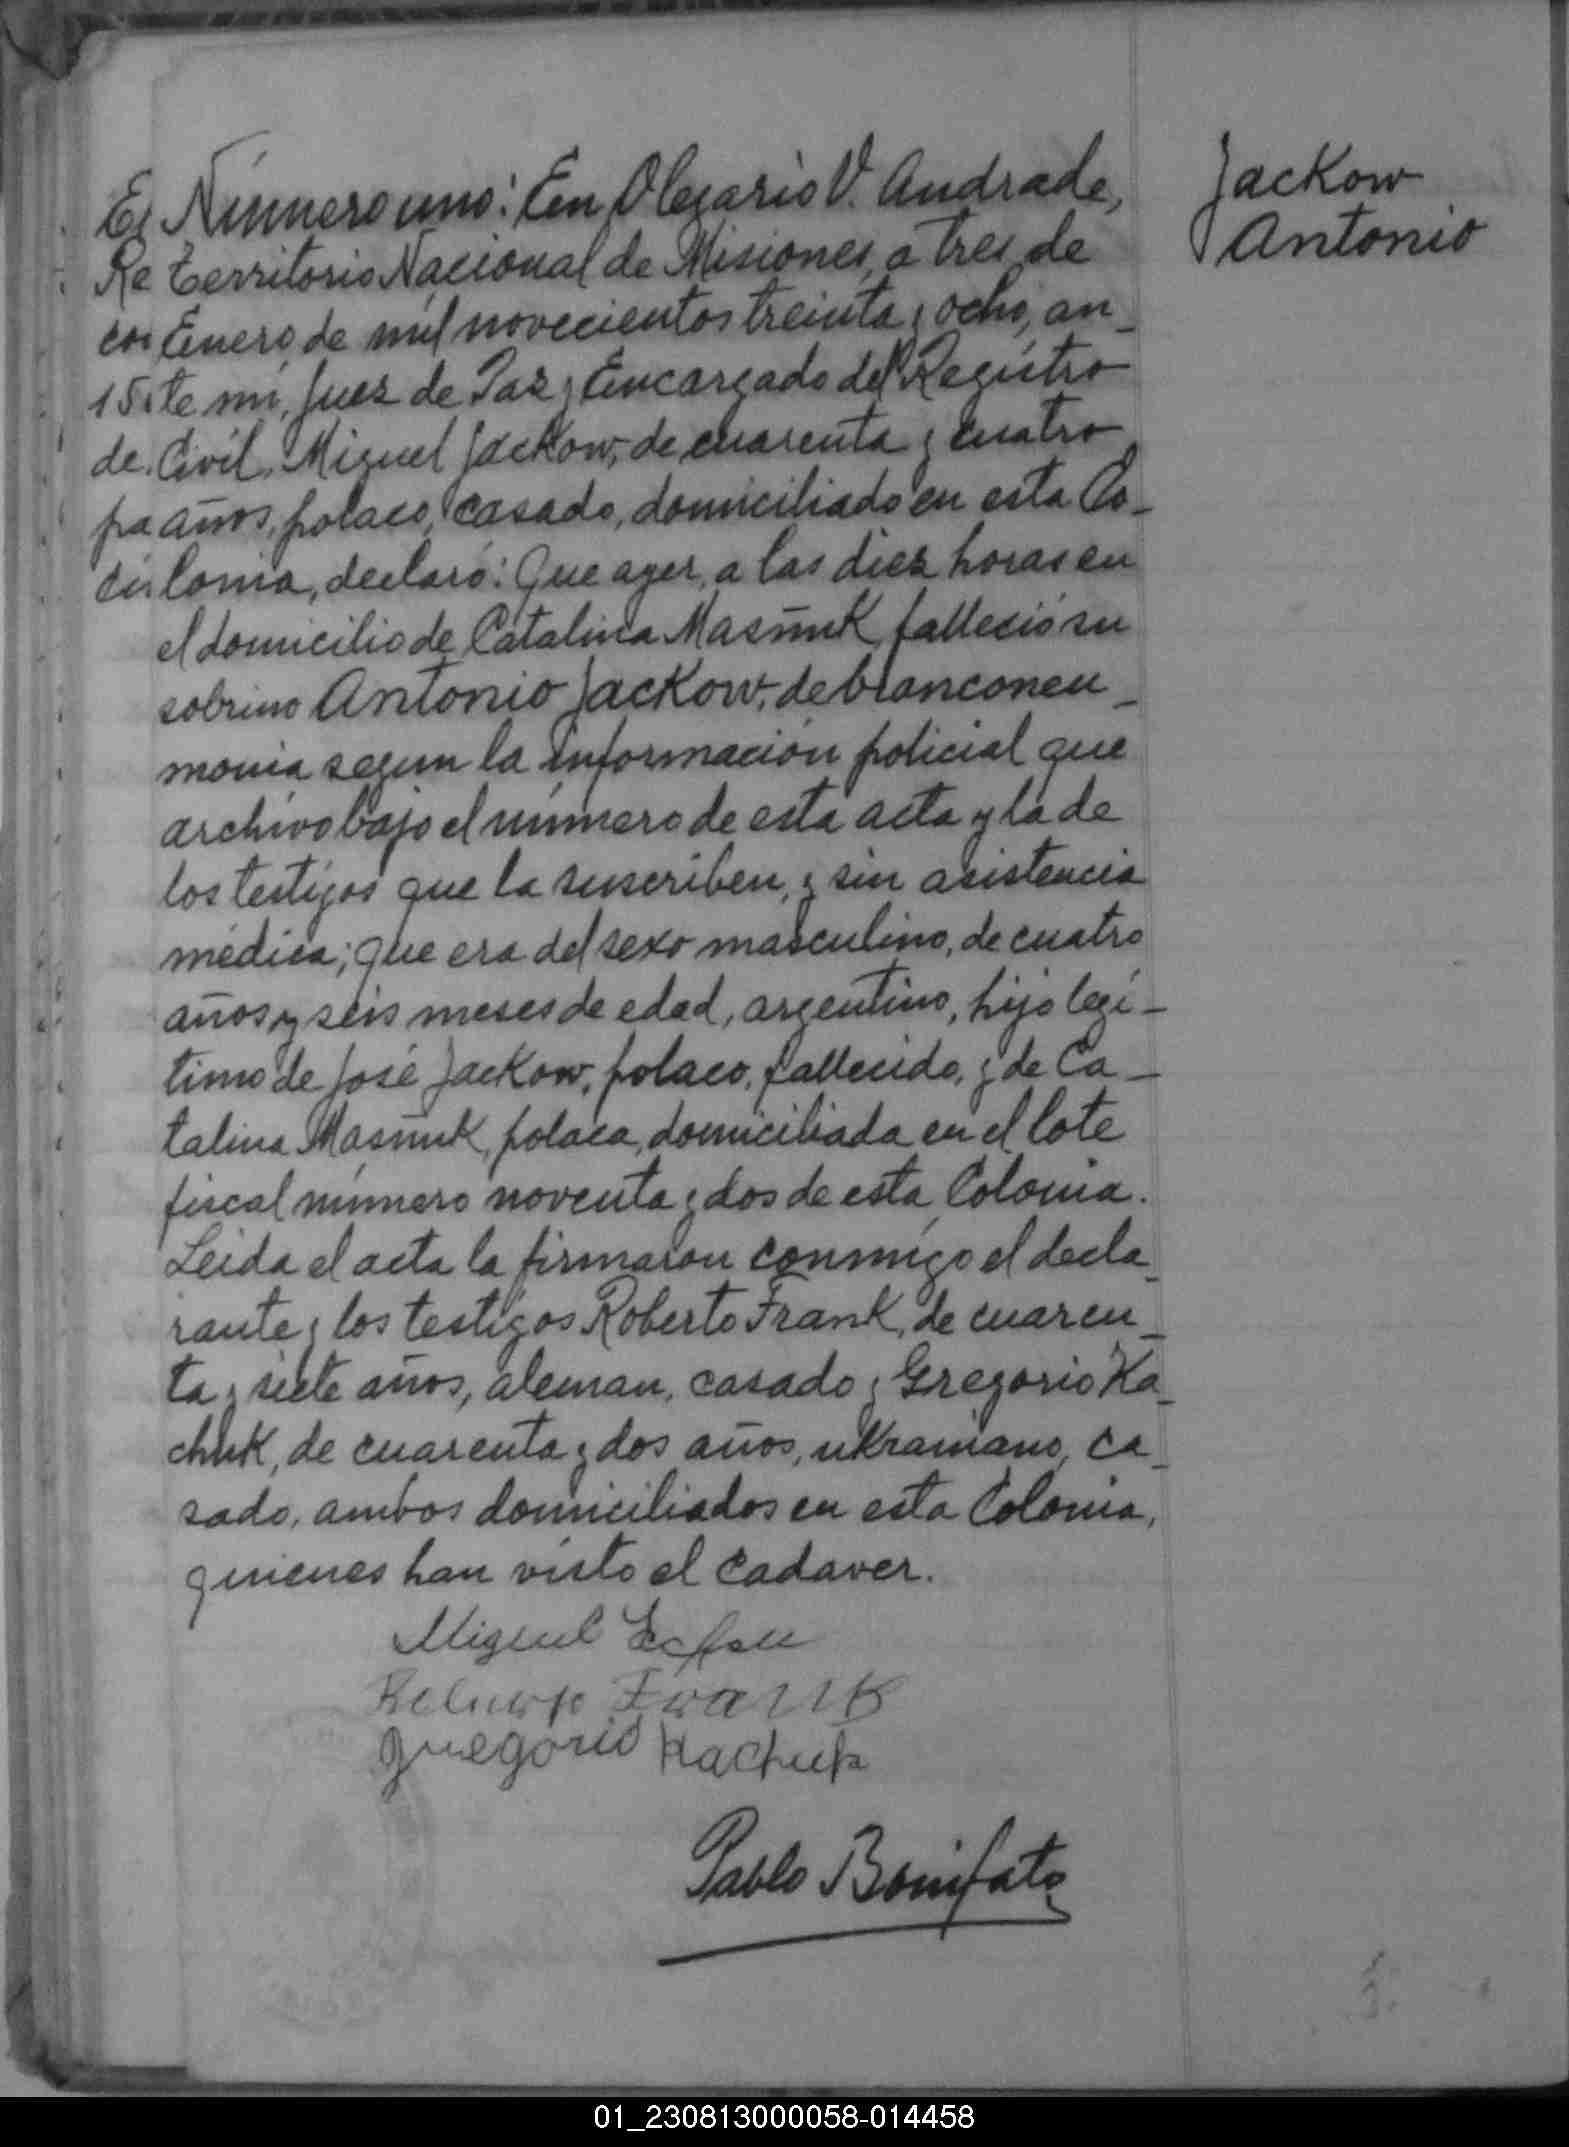 Número uno: En Olegario V. Andrade,
Territorio Nacional de Misiones, a tres de
Enero de mil novecientos treinta y ocho, an_
te mi, Juez de Paz y Encargado del Registro
Civil, Miguel Jackow, de cuarenta y cuatro
años, polaco, casado, domiciliado en esta Co_
lonia, declaró: Que ayer, a las diez horas en
el domicilio de Catalina Masñuk, falleció su
sobrino Antonio Jackow, de branconeu_
monia segun la información policial que
archivo bajo el número de esta acta y la de
los testigos que la suscriben, y sin asistencia
médica; que era del sexo masculino, de cuatro
años y seis meses de edad, argentino, hijo legi_
timo de José Jackow, polaco, fallecido, y de Ca_
talina Masñuk, polaca, domiciliada en el lote
fiscal número noventa y dos de esta Colonia.
Leida el acta la firmaron conmigo el decla_
rante y los testigos Roberto Frank, de cuaren_
ta y siete años, aleman, casado y Gregorio Ka_
chuk, de cuarenta y dos años, ukraniano, ca_
sado, ambos domiciliados en esta Colonia,
quienes han visto el cadaver.
Miguel
Frank
Gregorio Kachuk
Pablo Bonifato
Jackow
Antonio
01_230813000058-014458